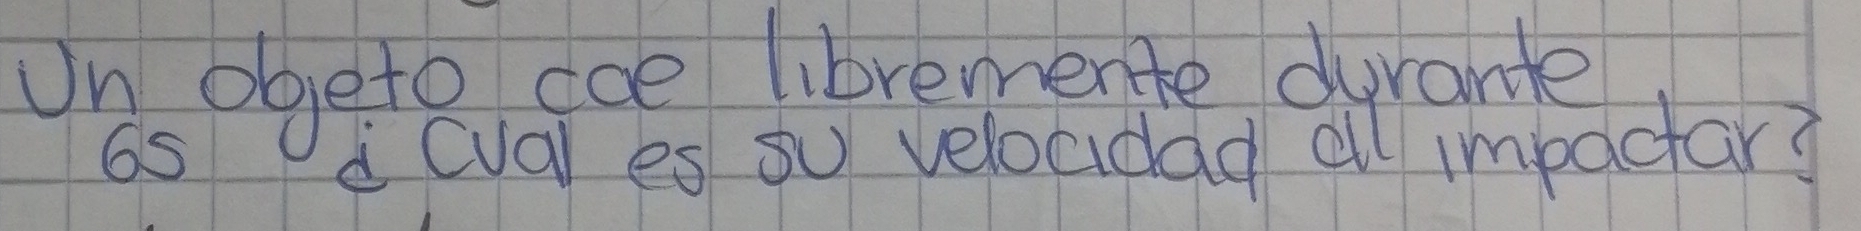 Un objeto cae libremente durante
6s ¿Cual es su velocidad al impactar?